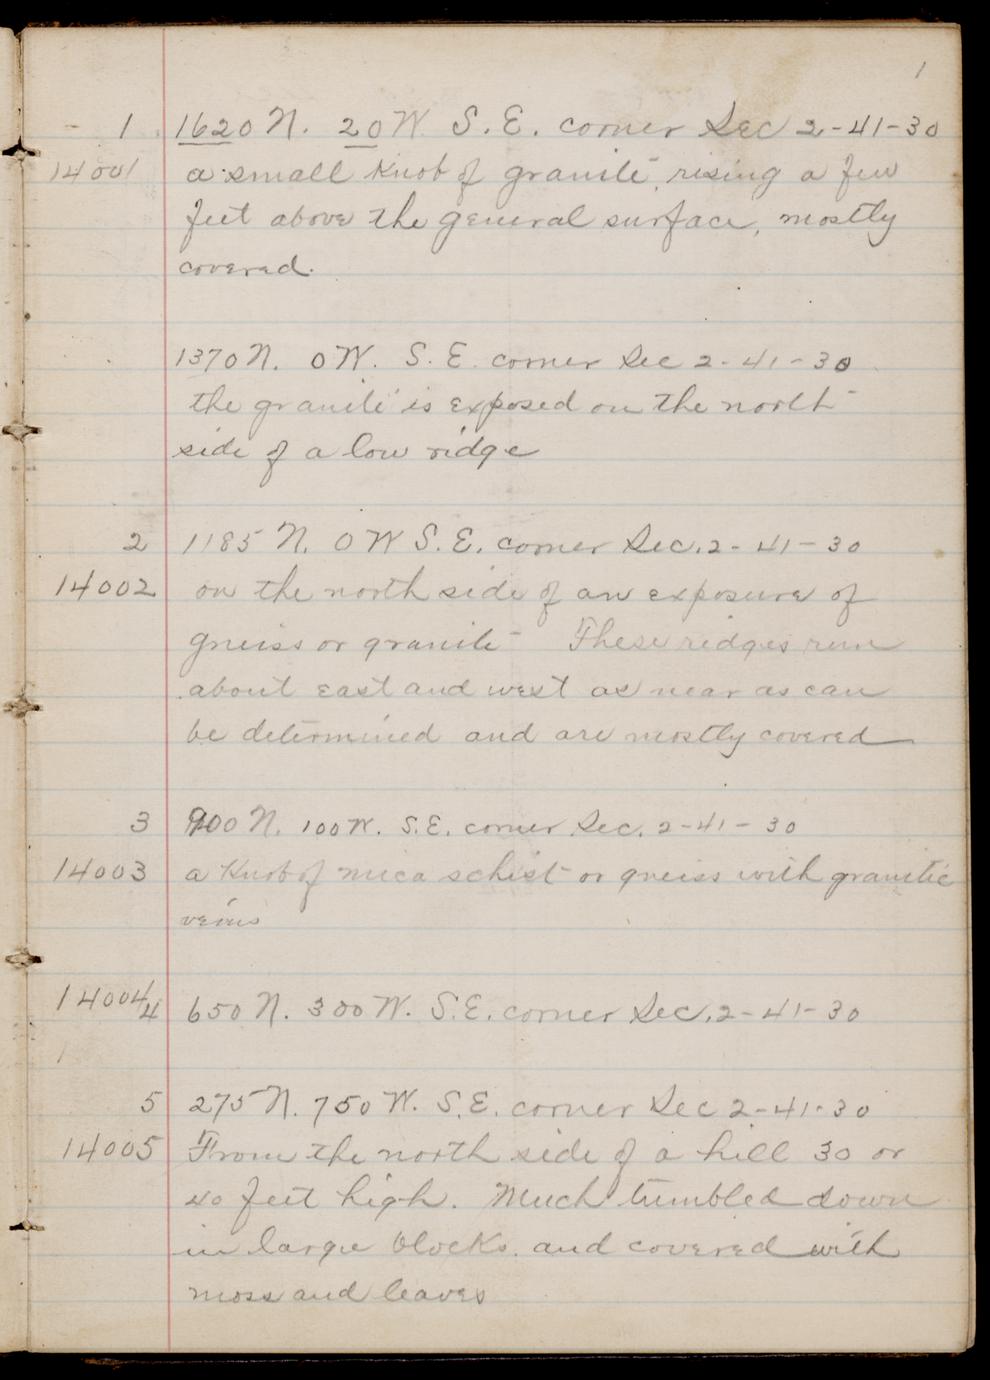 1
1 1620 N. 20 W. S. E. corner Sec 2-41-30
14001 a small knob of granite, rising a few
feet above the general surface, mostly
covered.
1370 N. 0 W. S. E. corner Sec 2-41-30
the granite is exposed on the north
side of a low ridge
2 1185 N. 0 W S. E. corner Sec. 2-41-30
14002 on the north side of an exposure of
gneiss or granite These ridges run
about east and west as near as can
be determined and are mostly covered
3 900 N. 100 W. S. E. corner Sec. 2-41-30
14003 a Knob of mica schist or gneiss with granitic
veins
14004 4 650 N. 300 W. S. E. corner Sec. 2-41-30
5 275 N. 750 W. S. E. corner Sec 2-41-30
14005 From the north side of a hill 30 or
40 feet high. Much tumbled down
in large blocks. and covered with
moss and leaves